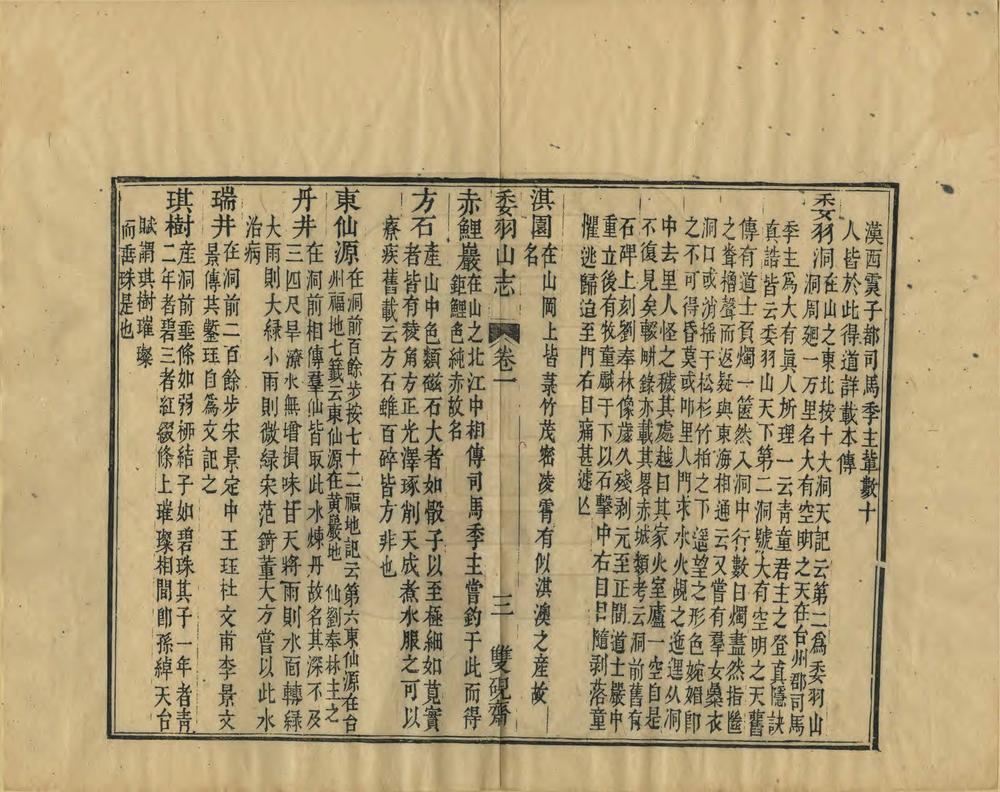 漢西靈子都司馬季主輩數十
人皆於此得道詳載本傳
委羽洞在山之東北按十大洞天記云第二爲委羽山
洞周廻一万里名大有空明之天在台州郡司馬
季主爲大有眞人所理一云青童君主之登真隱訣
真誥皆云委羽山天下第二洞號大有空明之天舊
傳有道士負燭一籃然入洞中行數日燭盡然指幽
之聳櫓聲而返疑與東海相通云又嘗有羣女縞衣
洞口或消搖于松杉竹柏之下遥望之形色婉媚卽
之不可得昏莫或叩里人門求水火覘之迤邐从洞
中去里人怪之穢其處越日其家火室廬一空自是
不復見矣輟畊錄亦載其畧赤城類考云洞前舊有
石碑上刻劉奉林像歲久殘剥元至正間道士嚴中
重立後有牧童戲于下以石擊中右目目隨剥落童
懼逃歸迨至門右目痛甚遽亾
淇園在山岡上皆菉竹茂密凌霄有似淇澳之産故
名
委羽山志 卷一 三 雙硯齋
赤鯉巖在山之北江中相傳司馬季主嘗釣于此而得
鉅鯉色純赤故名
方石産山中色類磁石大者如骰子以至極細如莧實
者皆有稜角方正光澤琢削天成煮水服之可以
療疾舊載云方石雖百碎皆方非也
東仙源在洞前百餘步按七十二福地記云第六東仙源在台
州福地七籖云東仙源在黄巖地仙劉奉林主之
丹井在洞前相傳羣仙皆取此水煉丹故名其深不及
三四尺旱潦水無增損味甘天將雨則水面轉綠
大雨則大綠小雨則微綠宋范錡董大方嘗以此水
治病
瑞井在洞前二百餘步宋景定中王珏社文甫李景文
景傳共鑿珏自爲文記之
琪樹産洞前垂條如弱栁結子如碧珠其子一年者青
二年者碧三者紅綴條上璀璨相間卽孫綽天台
賦謂琪樹璀璨
而垂珠是也